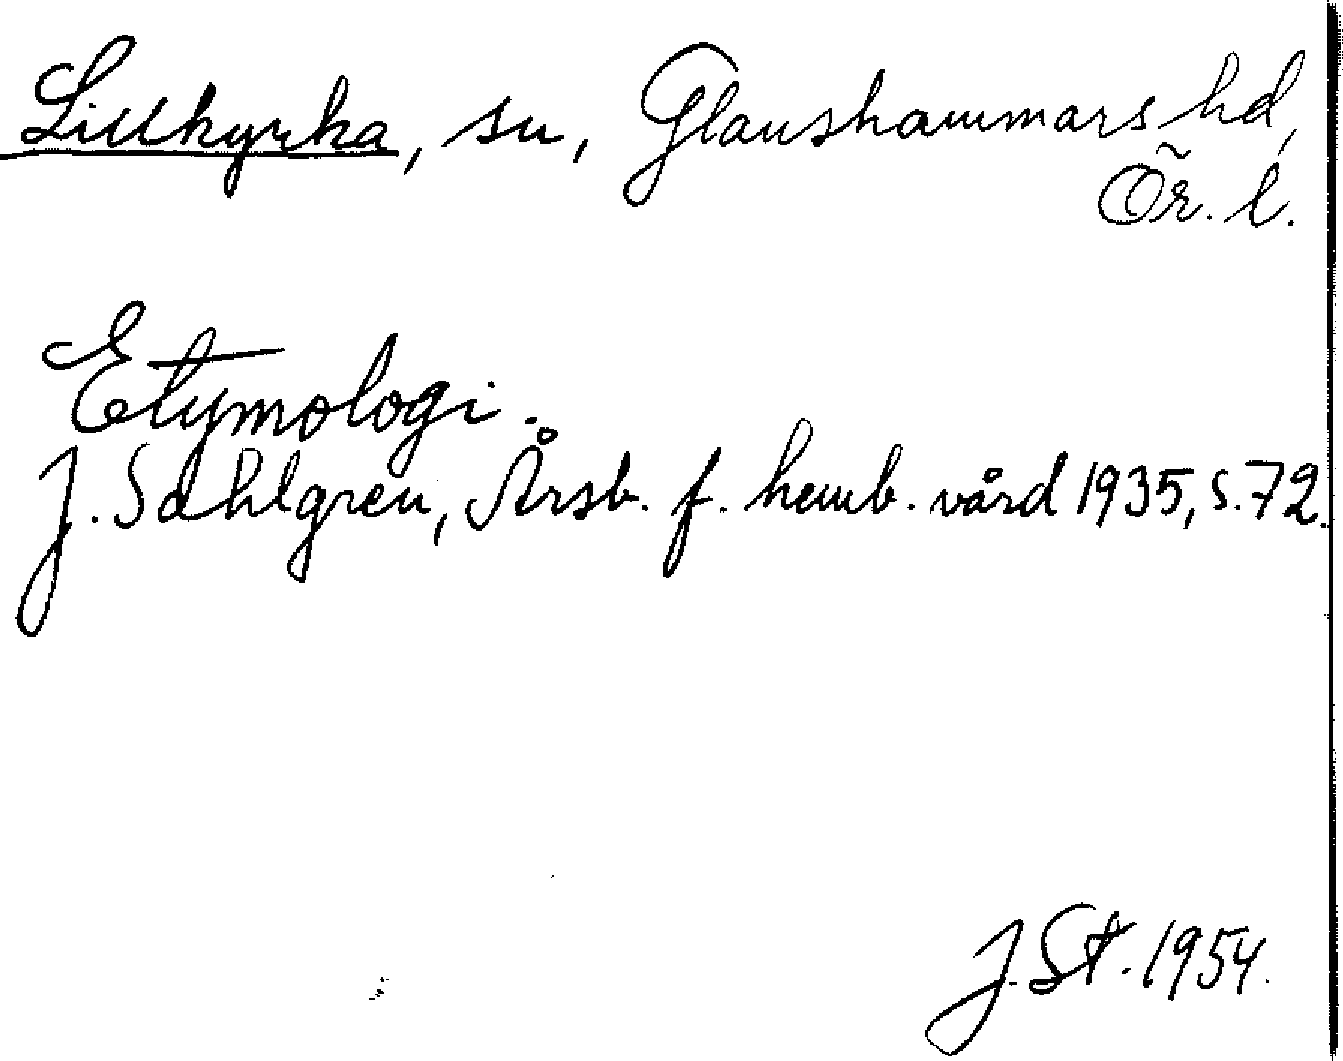 Lillkyrka, sn, Glanshammars hd,
Ör. l.
Etymologi.
J. Sahlgren, Årsb. f. hemb. vård 1935, s. 72.
J. St. 1954.